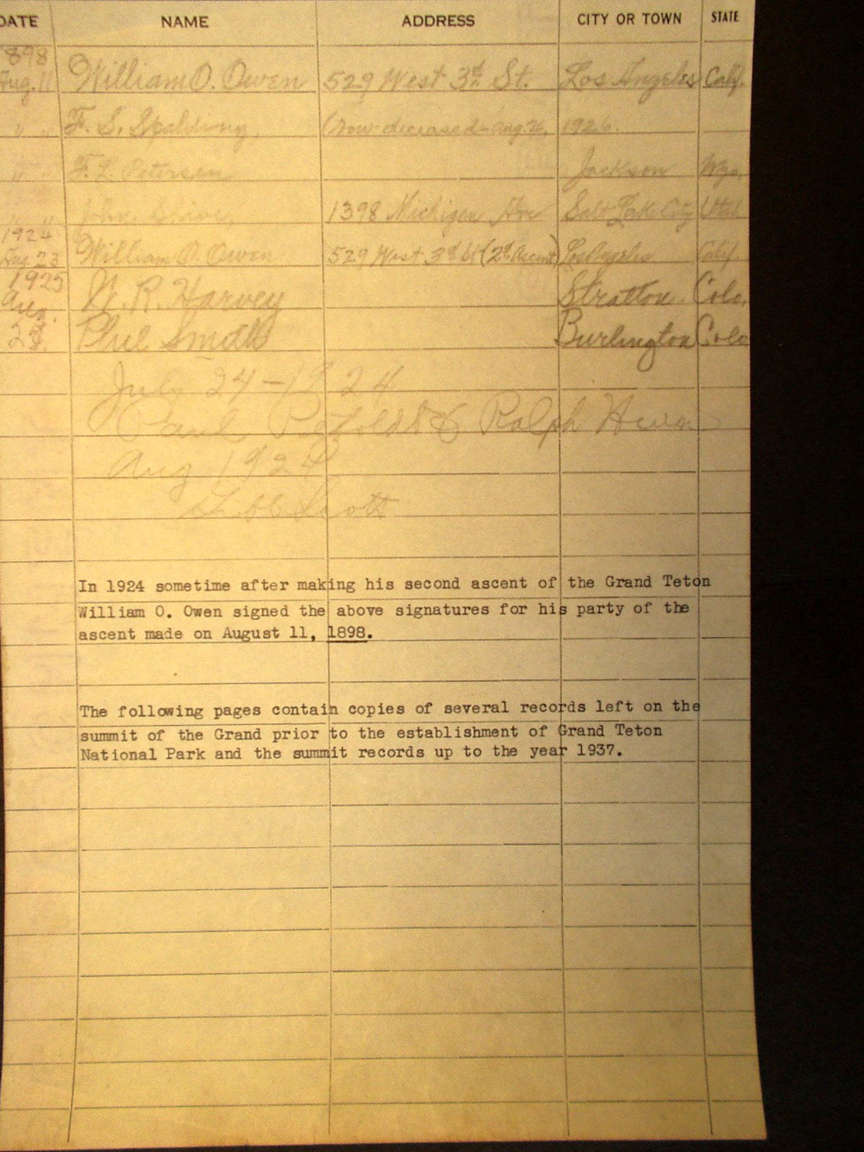 DATE NAME ADDRESS CITY OR TOWN STATE
1898
Aug. 11 William O. Owen 529 West 3rd St. Los Angeles Calif.
" " F. S. Spalding, (now deceased - Aug. 26, 1926.
" " F. L. Petersen Jackson Wyo.
" " John Shive, 1398 Michigan Ave Salt Lake City Utah
1924
Aug 23 William O. Owen 529 West 3d St (2d Ascent) Los Angeles Calif
1925 N. R. Harvey Stratton. Colo.
Aug. Phil Smith Burlington Colo
July 24-1924
Paul & Ralph
Aug 1924
Scott
In 1924 sometime after making his second ascent of the Grand Teton
William O. Owen signed the above signatures for his party of the
ascent made on August 11, 1898.
The following pages contain copies of several records left on the
summit of the Grand prior to the establishment of Grand Teton
National Park and the summit records up to the year 1937.